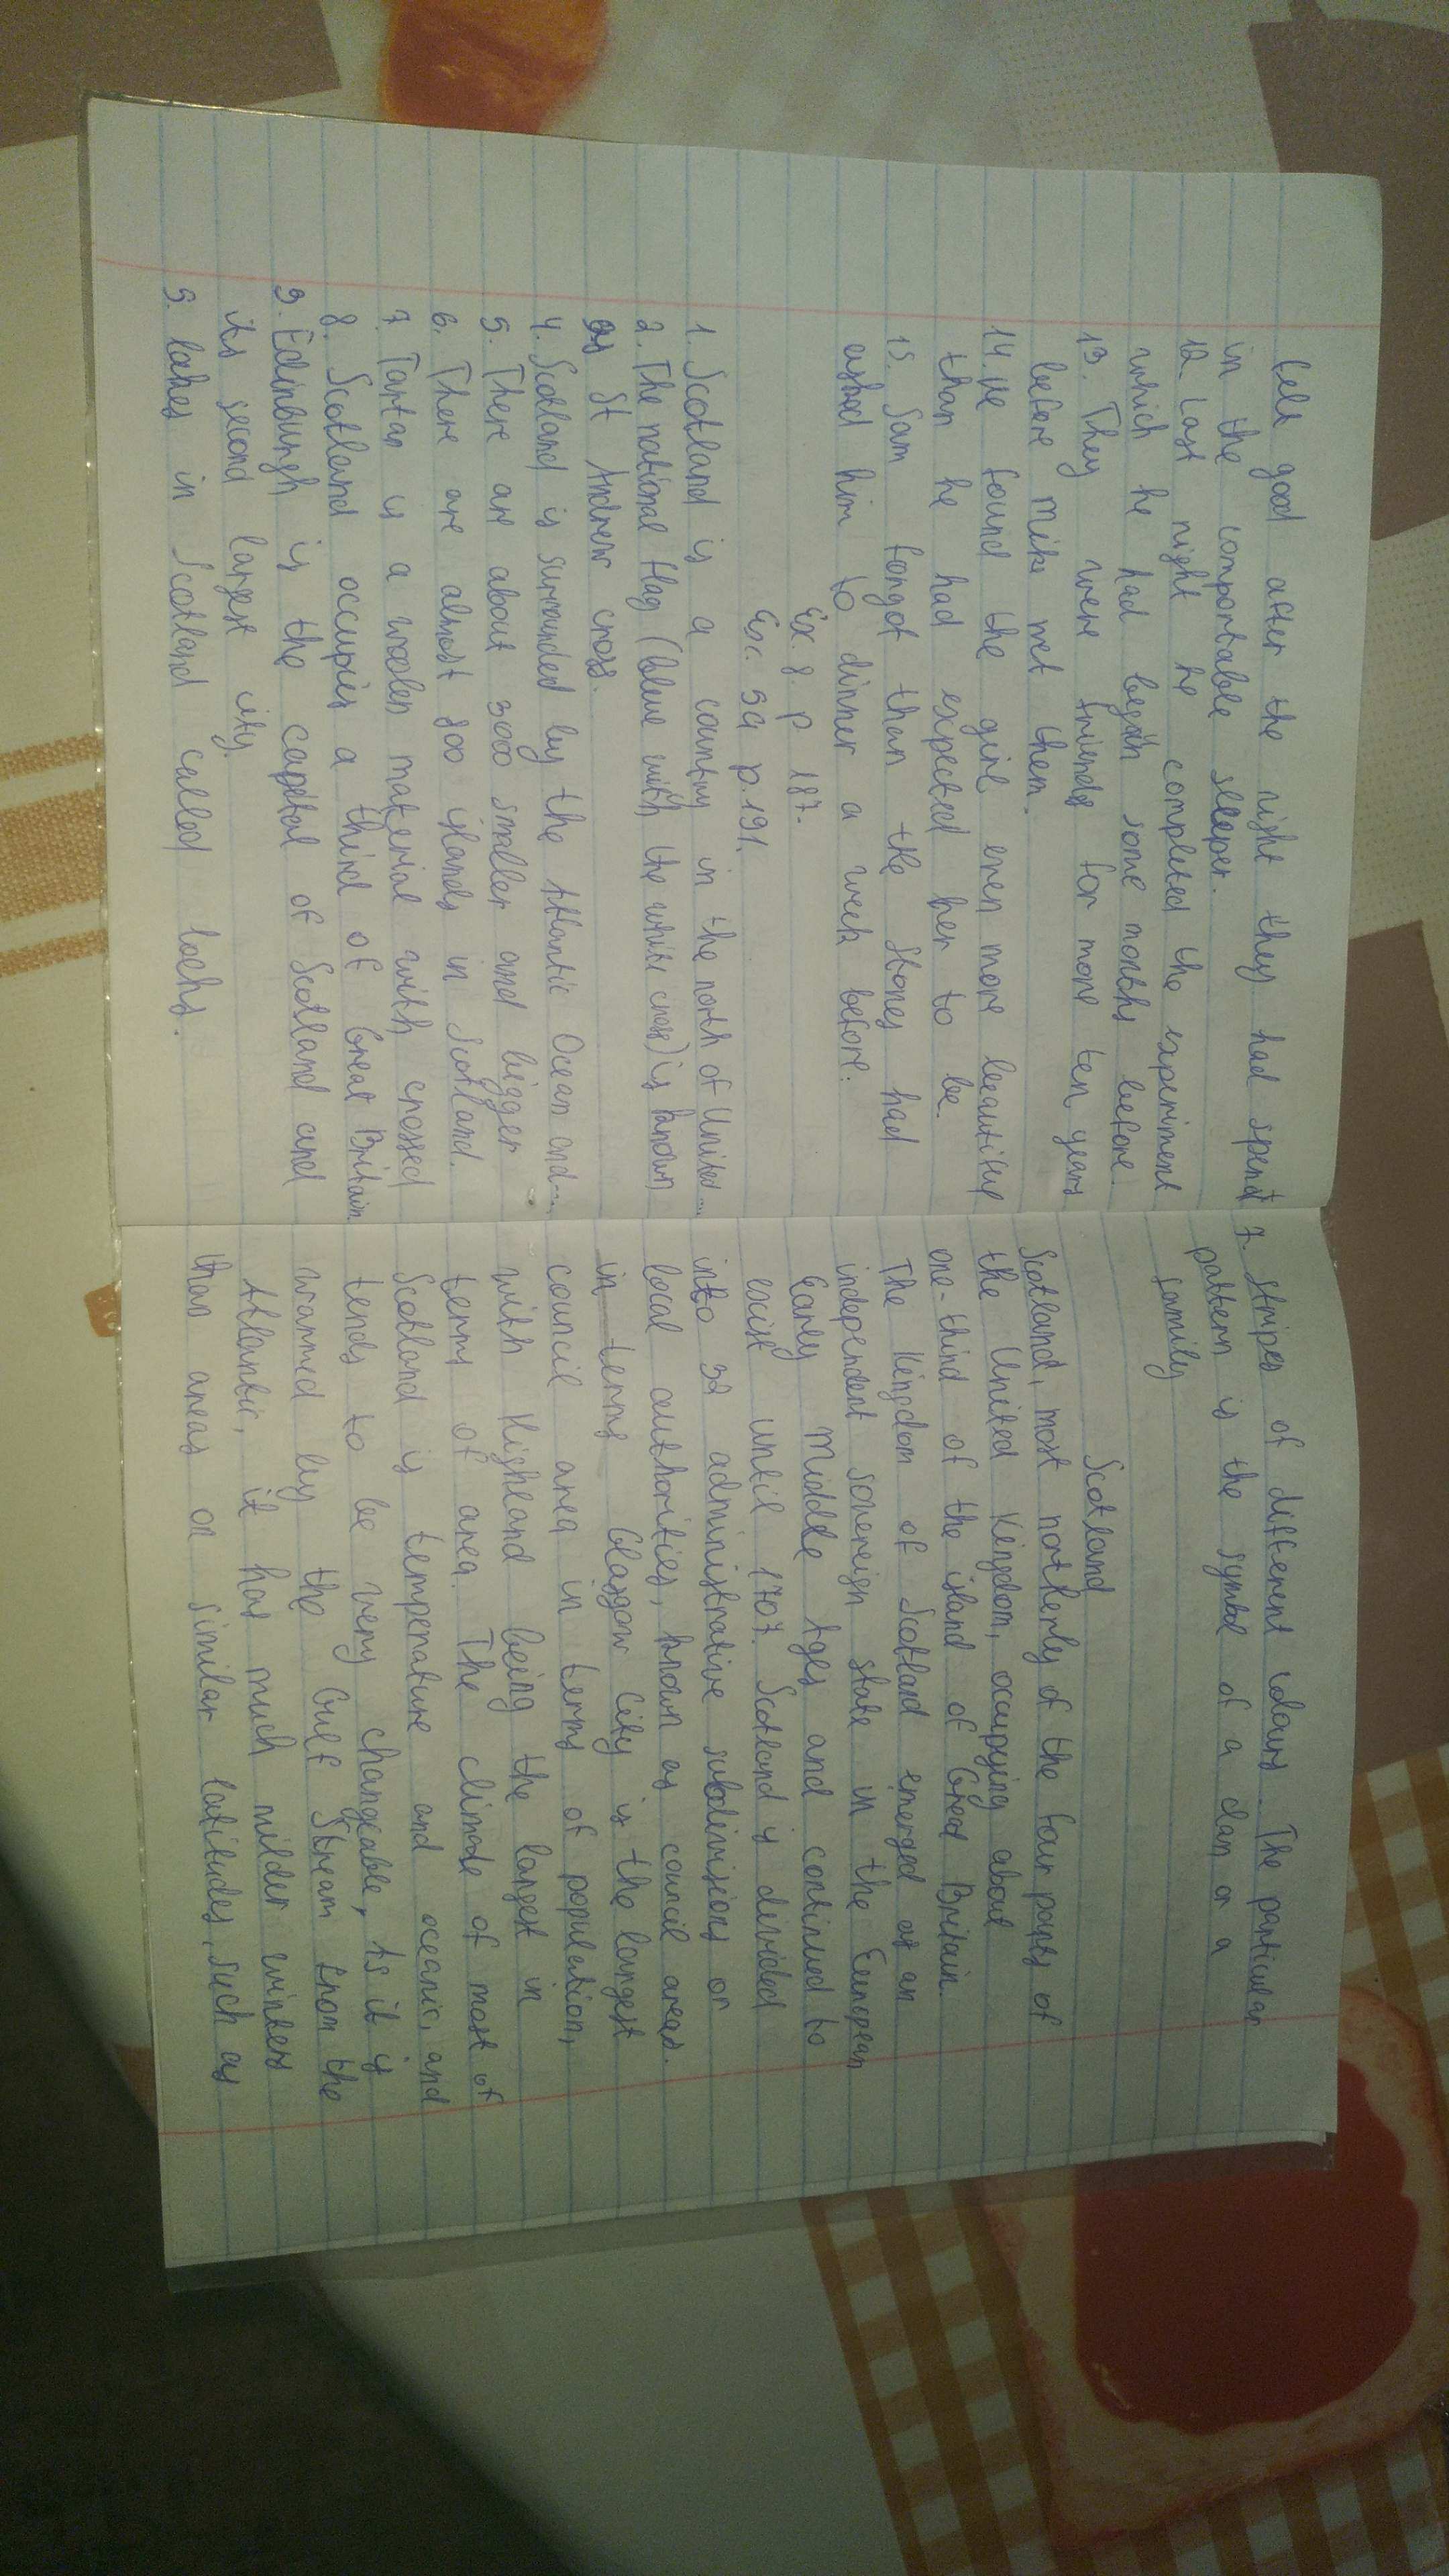 felt good after the night they had spent
in the comportable sleeper.
12. Last night he completed the experiment
which he had begun some months before.
13. They were friends for more ten years
before Mike met them.
14. He found the girl even more beautiful
than he had expected her to be.
15. Sam forgot than the Stones had
asked him to dinner a week before.
Ex. 8. p 187.
Ex. 5a p. 191.
1. Scotland is a country in the north of United...
2. The national flag (blue with the white cross) is known
as St Andrew cross.
4. Scotland is surrounded by the Atlantic Ocean and...
5. There are about 3000 smaller and bigger
6. There are almost 800 islands in Scotland.
7. Tartan is a woolen material with crossed
8. Scotland occupies a third of Great Britain
9. Edinburgh is the capital of Scotland and
its second largest city
5. lakes in Scotland called lochs.
7. stripes of different colours. The particular
pattern is the symbol of a clan or a
family
Scotland
Scotland, most northerly of the four parts of
the United Kingdom, occupying about
one-third of the island of Great Britain.
The Kingdom of Scotland emerged as an
independent sovereign state in the European
Early Middle Ages and continued to
exist until 1707. Scotland is devided
into 32 administrative subdivisions or
local authorities, known as council areas.
in terms Glasgow City is the largest
council area in terms of population,
with Highland being the largest in
terms of area. The climate of most of
Scotland is temperature and oceanic, and
tends to be very changeable, As it is
warmed by the Gulf Stream from the
Atlantic, it has much milder winters
than areas on similar latitudes, such as